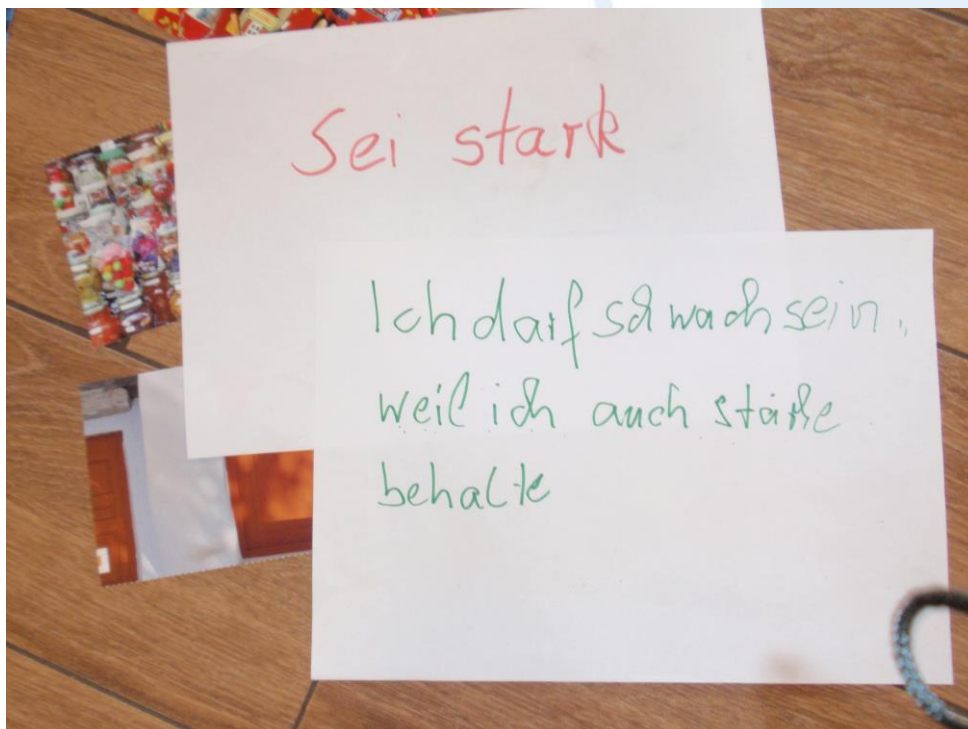 Sei stark
Ich darf schwach sein,
weil ich auch stärke
behalte